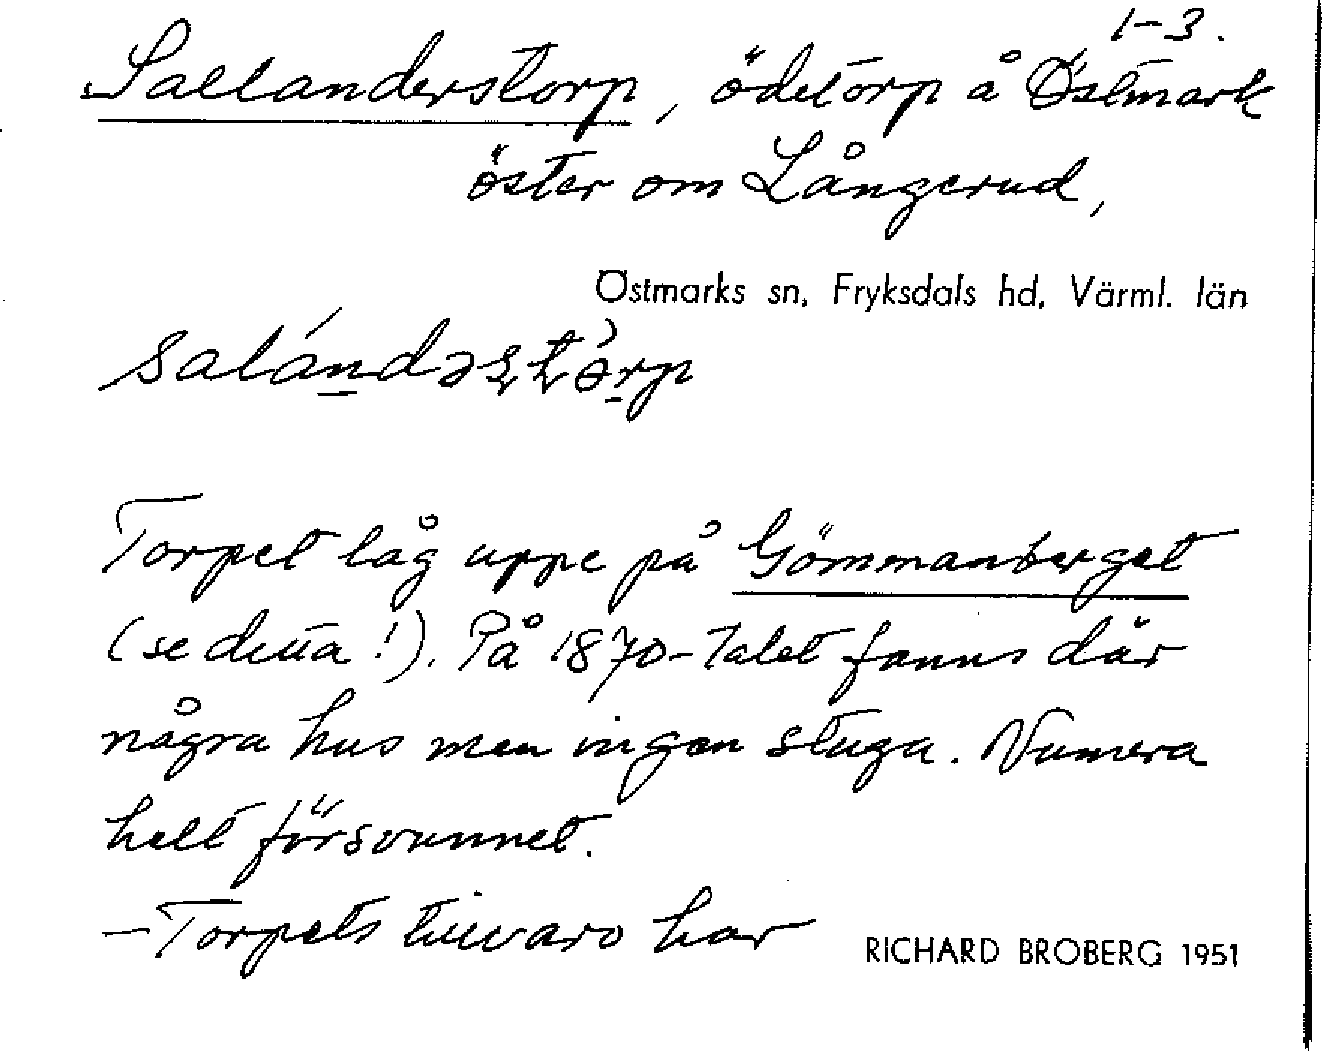 1-3.
Sallanderstorp, ödetorp å Östmark
öster om Långerud,
Östmarks sn, Fryksdals hd, Värml. län
Torpet låg uppe på Gömmanberget
(se detta!). På 1870-talet fanns där
några hus men ingen stuga. Numera
helt försvunnet.
– Torpets tillvaro har
RICHARD BROBERG 1951